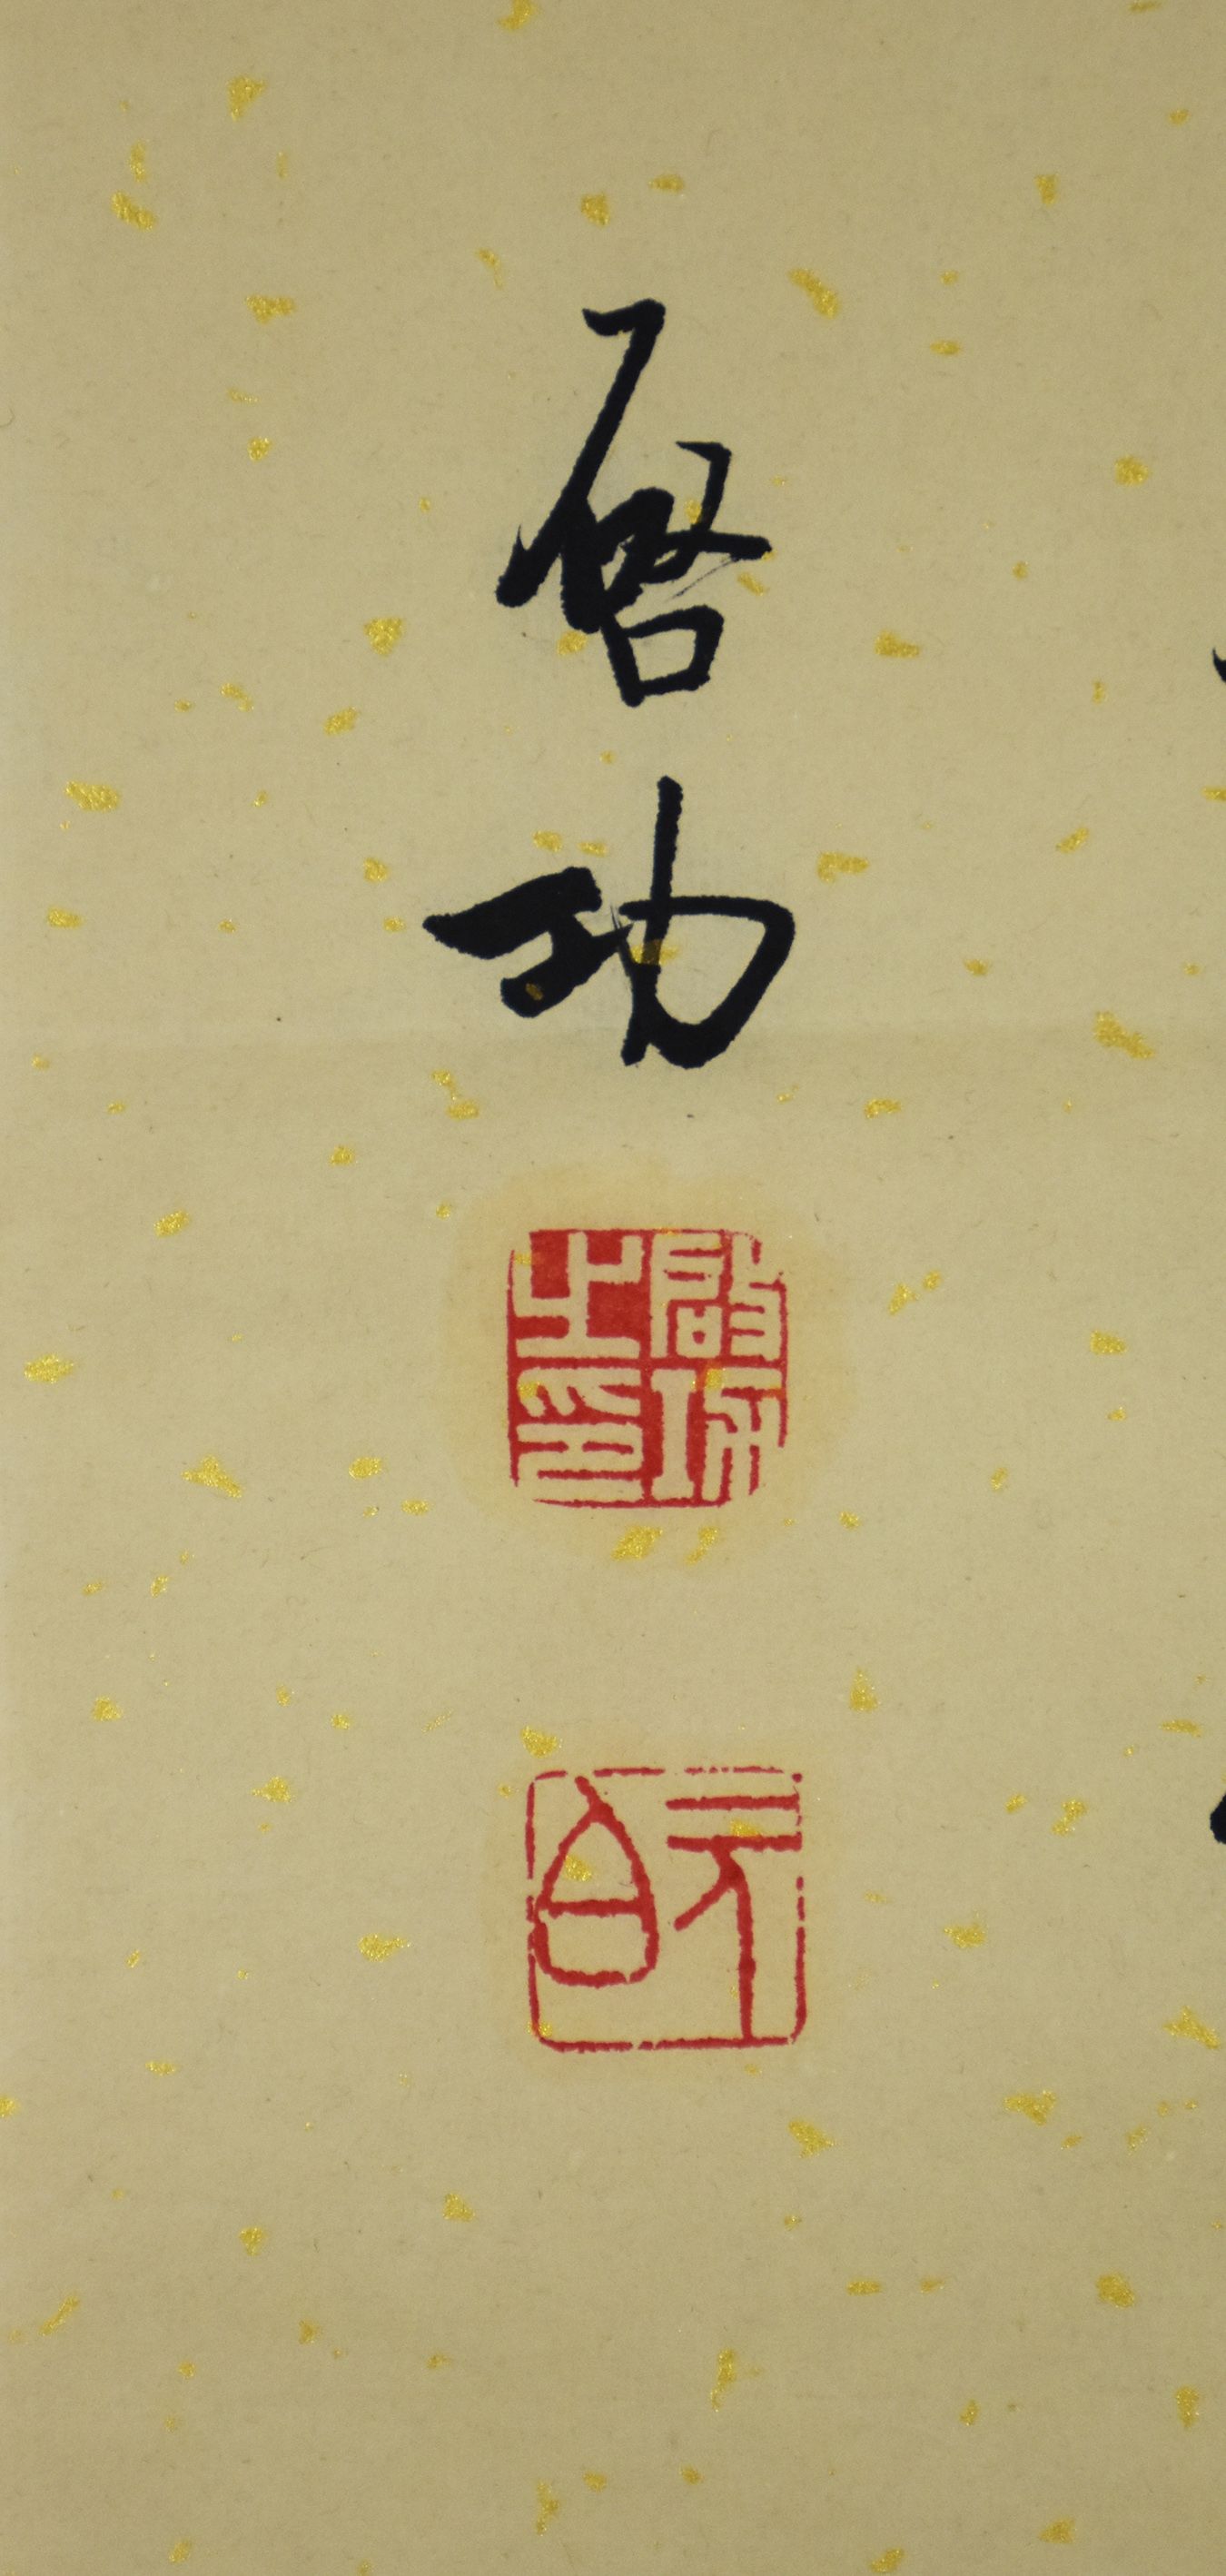 啟功
啟功之印
元白